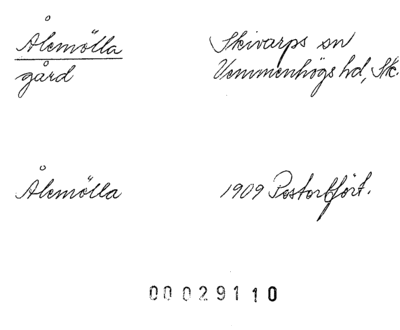 Ålemölla Skivarps sn
gård Vemmenhögs hd, Sk.
Ålemölla 1909 Postortfört.
00029110